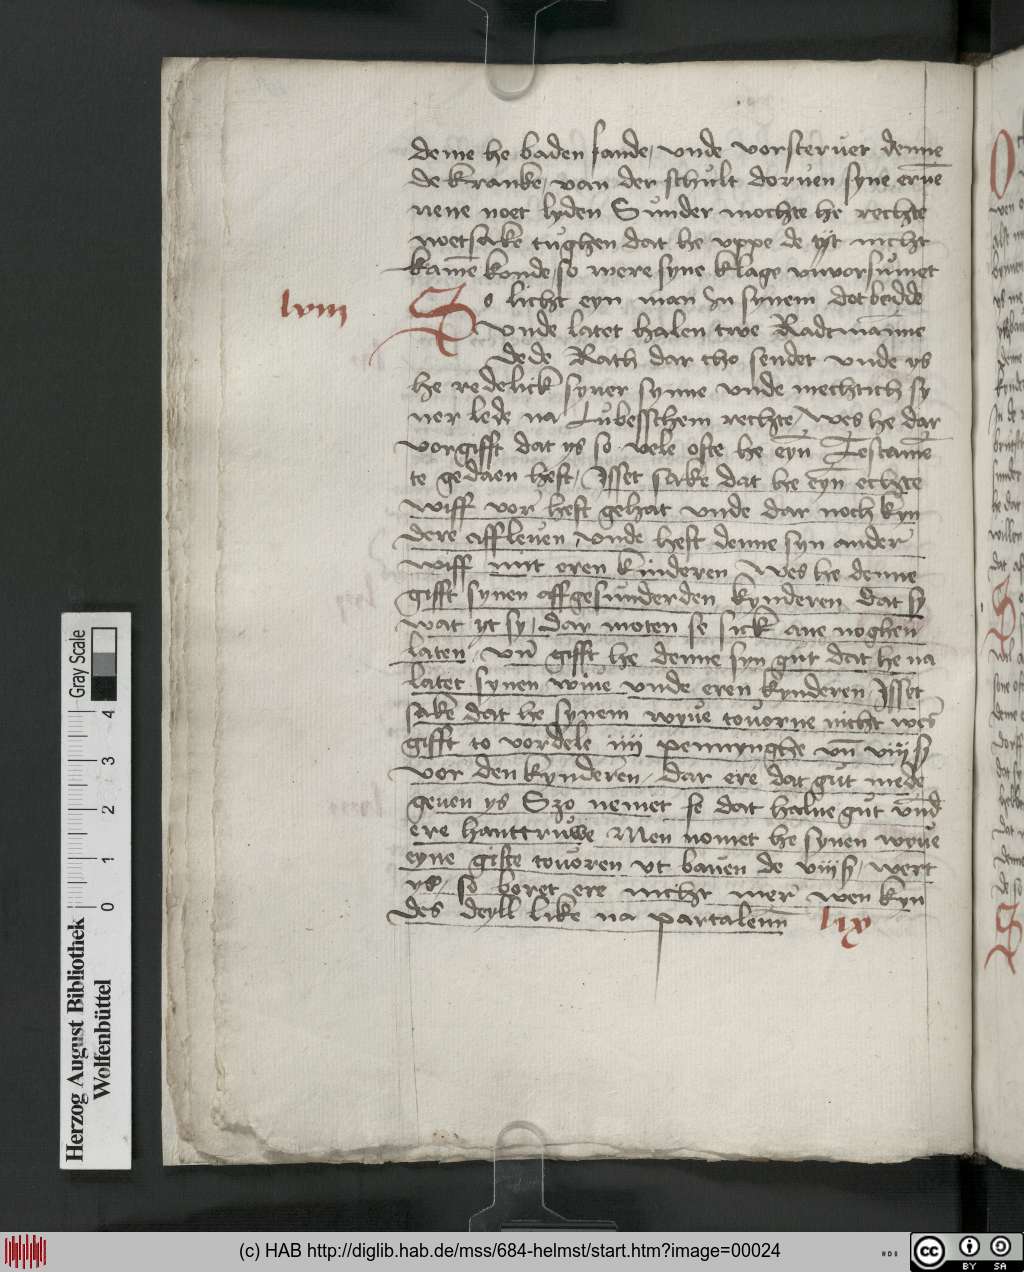 deme he baden sande / vnde vorsteruet denne
de kranke / van der schult doruen syne erue
nene noet lyden Sunder mochte he rechte
noetsake tughen dat he vppe de tyt nicht
kamē konde so were syne klage vnvorsumet
lviii
So licht eyn man In synem dotbedde
vnde latet halen twe Radtmanne
de de Rath dar tho sendet vnde ys
he redelick syner synne vnde mechtich sy
ner lede na Lubesschem rechte / Wes he dar
vorgifft dat ys so vele ofte he eyn Testamē
te gedaen heft / Isset sake dat he eyn echte
wiff vor heft gehat vnde dar noch kyn
dere affleuen / vnde heft denne syn ander
wiff mit eren kinderen Wes he denne
gifft synen affgesunderden kynderen dat sy
wat yt sy / dar moten se sick ane noghen
laten / vn̄ gifft he denne syn gut dat he na
latet synen wiue vnde eren kynderen Isset
sake dat he synem wyue touorne nicht wes
gifft to vordele iiii pennynghe vn̄ viii ß
vor den kynderen / dar ere dat gut mede
geuen ys Szo nemet se dat halue gut vnd
ere hanttruwe Men nomet he synen wyue
eyne gifte touoren vt bauen de viii ß / wert
ys / so boret ere nicht mer wen kyn
des deyll like na partalenn
lix
Gray Scale
0 1 2 3 4
Herzog August Bibliothek
Wolfenbüttel
(c) HAB http://diglib.hab.de/mss/684-helmst/start.htm?image=00024
cc BY SA